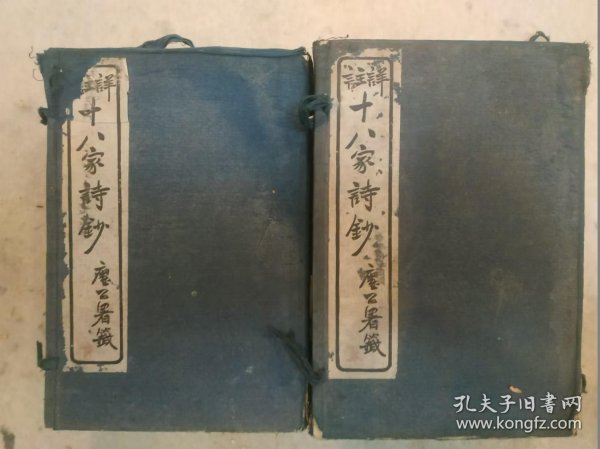 詳註
十八家詩鈔
塵公署籤
詳註
十八家詩鈔
塵公署籤
孔夫子旧書网
www.kongfz.com